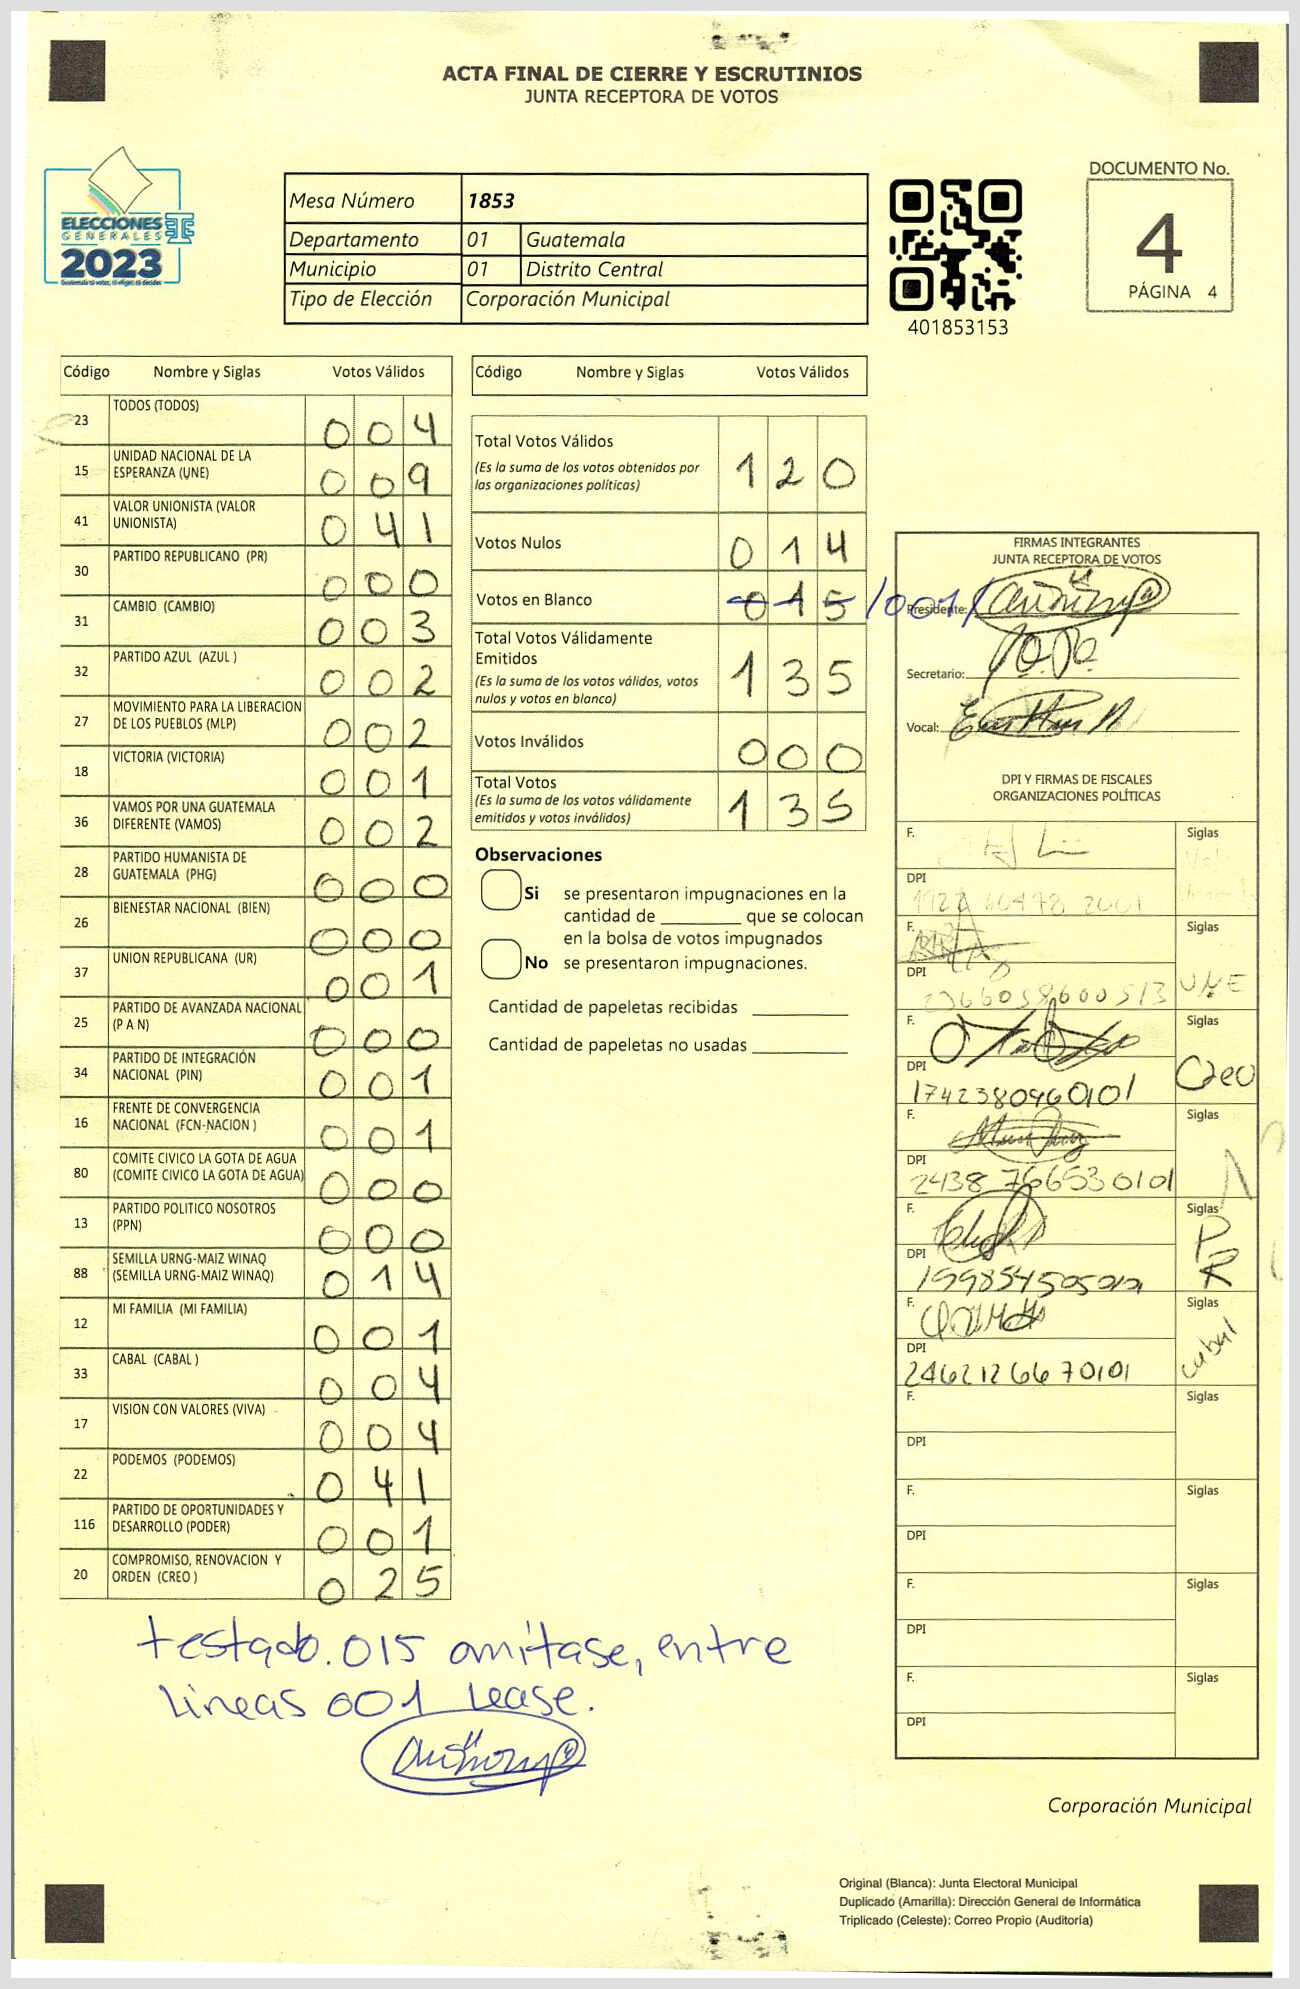 ACTA FINAL DE CIERRE Y ESCRUTINIOS
JUNTA RECEPTORA DE VOTOS
ELECCIONES
GENERALES
2023
Mesa Número 1853
Departamento 01 Guatemala
Municipio 01 Distrito Central
Tipo de Elección Corporación Municipal
401853153
DOCUMENTO No.
4
PÁGINA 4
Código Nombre y Siglas Votos Válidos
23 TODOS (TODOS) 0 0 4
15 UNIDAD NACIONAL DE LA
ESPERANZA (UNE) 0 0 9
41 VALOR UNIONISTA (VALOR
UNIONISTA) 0 4 1
30 PARTIDO REPUBLICANO (PR) 0 0 0
31 CAMBIO (CAMBIO) 0 0 3
32 PARTIDO AZUL (AZUL ) 0 0 2
27 MOVIMIENTO PARA LA LIBERACION
DE LOS PUEBLOS (MLP) 0 0 2
18 VICTORIA (VICTORIA) 0 0 1
36 VAMOS POR UNA GUATEMALA
DIFERENTE (VAMOS) 0 0 2
28 PARTIDO HUMANISTA DE
GUATEMALA (PHG) 0 0 0
26 BIENESTAR NACIONAL (BIEN) 0 0 0
37 UNION REPUBLICANA (UR) 0 0 1
25 PARTIDO DE AVANZADA NACIONAL
(P A N) 0 0 0
34 PARTIDO DE INTEGRACIÓN
NACIONAL (PIN) 0 0 1
16 FRENTE DE CONVERGENCIA
NACIONAL (FCN-NACION ) 0 0 1
80 COMITE CIVICO LA GOTA DE AGUA
(COMITE CIVICO LA GOTA DE AGUA) 0 0 0
13 PARTIDO POLITICO NOSOTROS
(PPN) 0 0 0
88 SEMILLA URNG-MAIZ WINAQ
(SEMILLA URNG-MAIZ WINAQ) 0 1 4
12 MI FAMILIA (MI FAMILIA) 0 0 1
33 CABAL (CABAL ) 0 0 4
17 VISION CON VALORES (VIVA) 0 0 4
22 PODEMOS (PODEMOS) 0 4 1
116 PARTIDO DE OPORTUNIDADES Y
DESARROLLO (PODER) 0 0 1
20 COMPROMISO, RENOVACION Y
ORDEN (CREO ) 0 2 5
Código Nombre y Siglas Votos Válidos
Total Votos Válidos 1 2 0
(Es la suma de los votos obtenidos por
las organizaciones políticas)
Votos Nulos 0 1 4
Votos en Blanco 0 1 5 /001/
Total Votos Válidamente
Emitidos 1 3 5
(Es la suma de los votos válidos, votos
nulos y votos en blanco)
Votos Inválidos 0 0 0
Total Votos 1 3 5
(Es la suma de los votos válidamente
emitidos y votos inválidos)
Observaciones
Si se presentaron impugnaciones en la
cantidad de ________ que se colocan
en la bolsa de votos impugnados
No se presentaron impugnaciones.
Cantidad de papeletas recibidas
Cantidad de papeletas no usadas
FIRMAS INTEGRANTES
JUNTA RECEPTORA DE VOTOS
Presidente:
Secretario:
Vocal:
DPI Y FIRMAS DE FISCALES
ORGANIZACIONES POLÍTICAS
F. Siglas
DPI
F. Siglas
DPI UNE
F. Siglas
DPI 1742380960101 Creo
F. Siglas
DPI 2438 766530101
F. Siglas
DPI PR
F. Siglas
DPI 2462126670101 cabal
F. Siglas
DPI
F. Siglas
DPI
F. Siglas
DPI
F. Siglas
DPI
testado.015 omitase, entre
lineas 001 Lease.
Corporación Municipal
Original (Blanca): Junta Electoral Municipal
Duplicado (Amarilla): Dirección General de Informática
Triplicado (Celeste): Correo Propio (Auditoría)